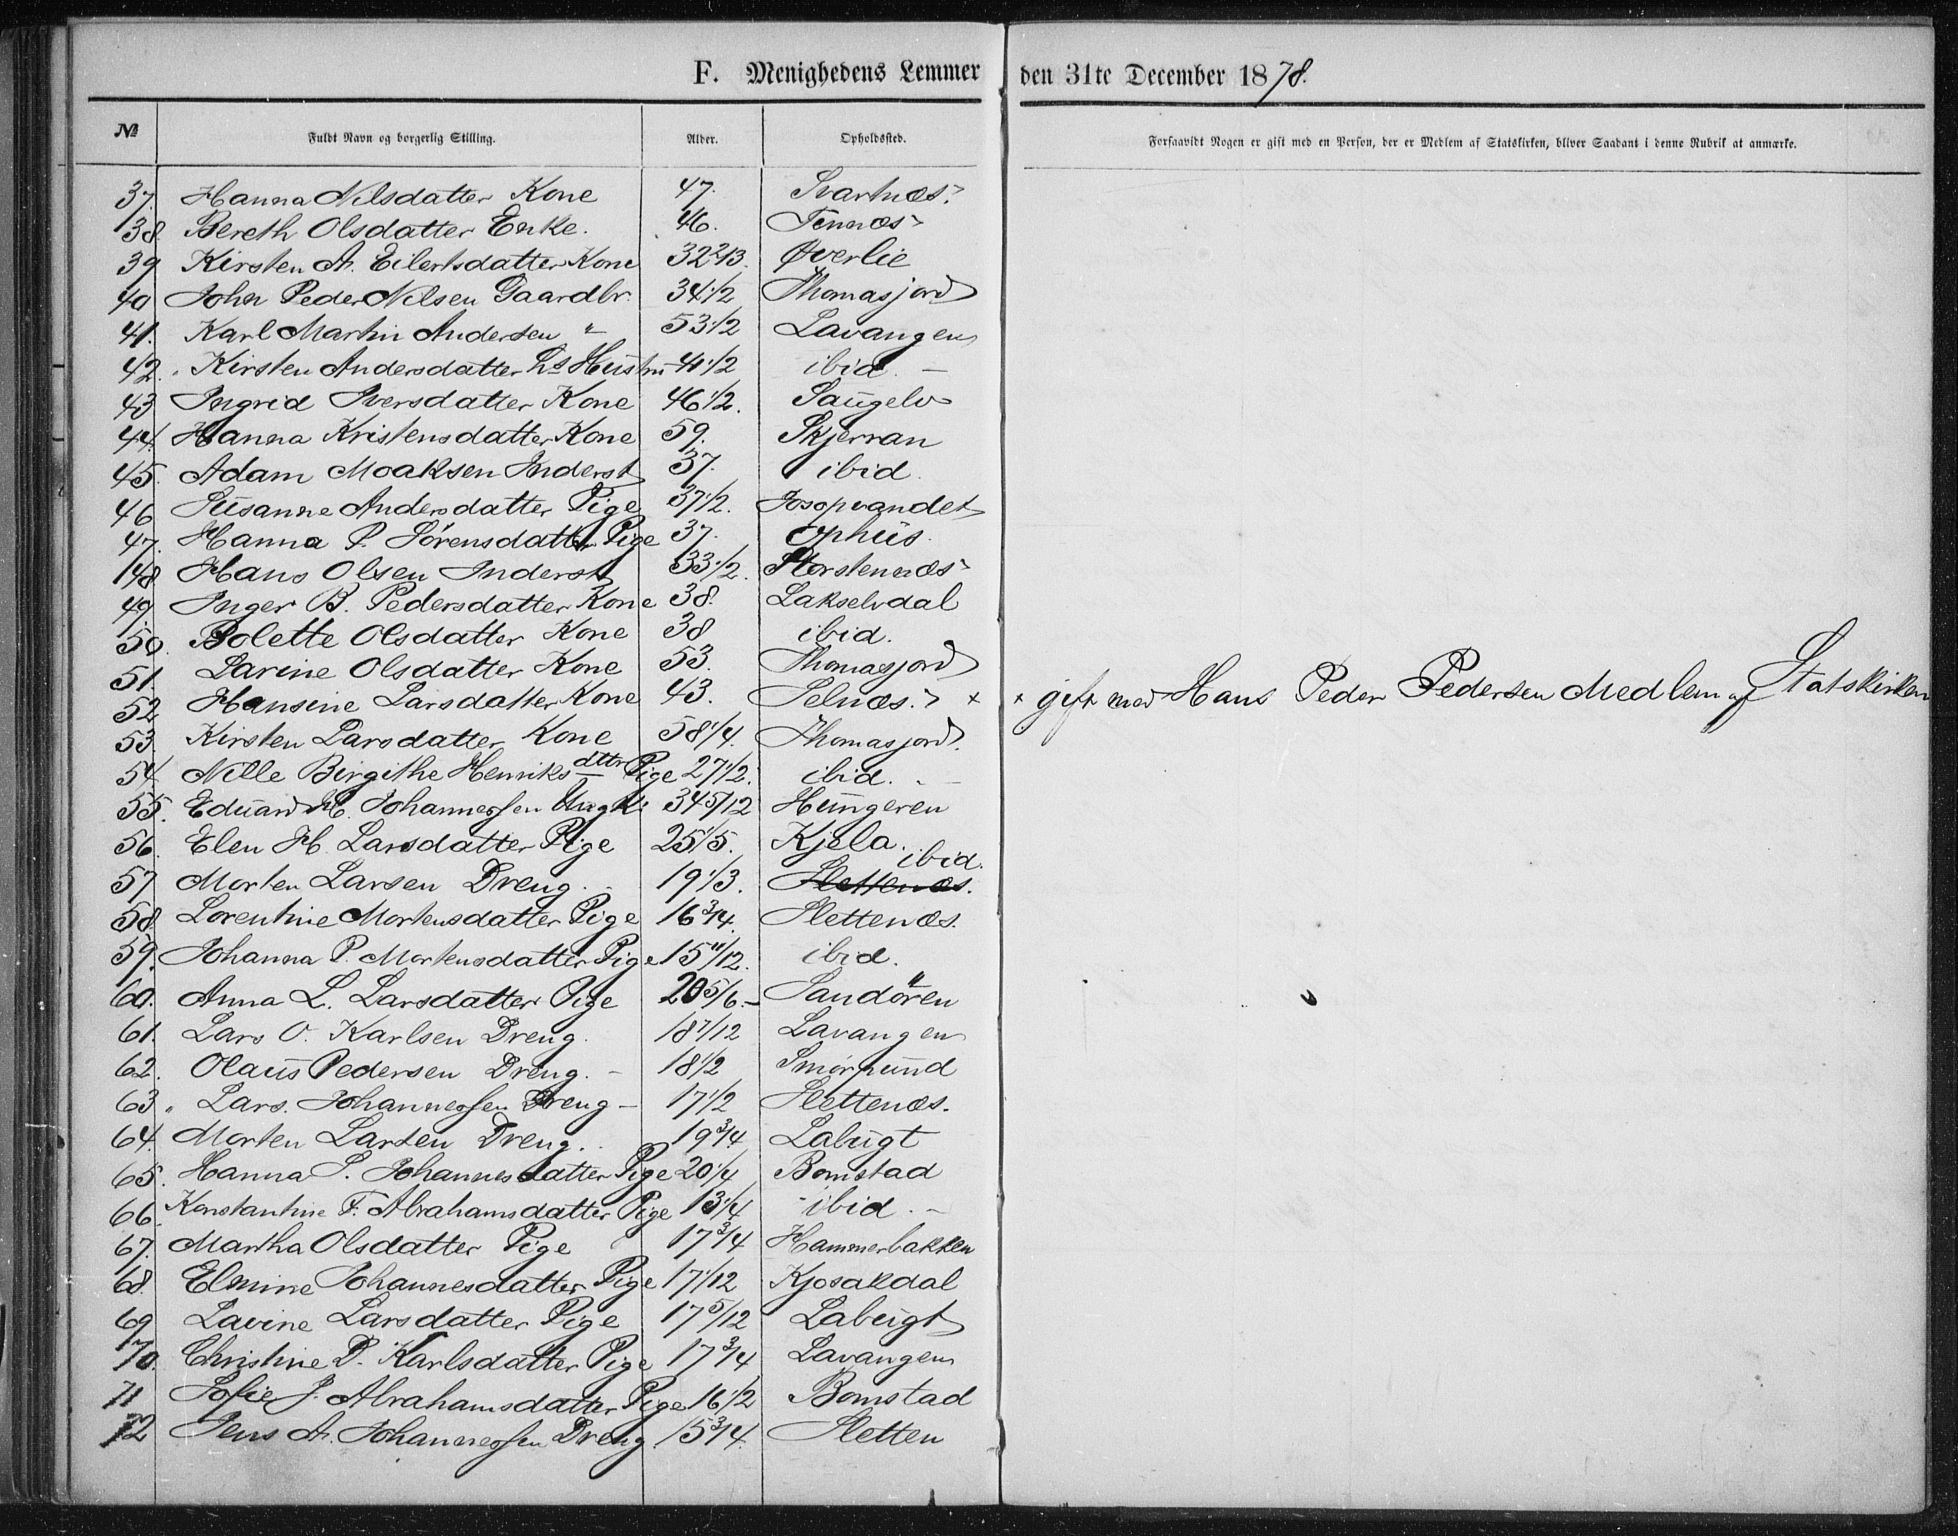 F. Menighedens Lemmer den 31te December 1878.
№ Fuldt Navn og borgerlig Stilling. Alder. Opholdssted. Forsaavidt Nogen er gift med en Person, der er Medlem af Statskirken, bliver Saadant i denne Rubrik at anmærke.
37. Hanna Nilsdatter Kone 47. Svartnæs.
38. Bereth Olsdatter Enke. 46. Tennæs
39 Kirsten A. Eilertsdatter Kone 32 2/3. Øverlie
40 John Peder Nilsen Gaardbr. 34 1/2 Thomasjord
41. Karl Martin Andersen " 53 1/2 Lavangen
42. Kirsten Andersdatter hs Hustru 41 1/2 ibid. –
43 Ingrid Iversdatter Kone 46 1/2. Saugelv
44. Hanna Kristensdatter Kone 59. Skjerran
45. Adam Moaksen Inderst 37. ibid.
46 Susanne Andersdatter Pige 37 1/2. Josopvandet
47. Hanna P. Sørensdatter Pige 37. Ophus.
48. Hans Olsen Inderst 33 1/2. Storstennæs
49. Inger B. Pedersdatter Kone 38. Lakselvdal
50. Bolette Olsdatter Kone 38 ibid.
51. Larine Olsdatter Kone 53. Thomasjord
52 Hansine Larsdatter Kone 43. Selnæs. × × gift med Hans Peder Pedersen Medlem af Statskirken
53. Kirsten Larsdatter Kone 58 1/4. Thomasjord.
54. Nille Birgithe Henriksdttr Pige 27 1/2. ibid. –
55. Eduard M. Johannessen Ungk. 34 5/12 Hungeren
56. Elen H. Larsdatter Pige 25 1/5. Kjela.
57 Morten Larsen Dreng. 19 1/3. Slettenæs. ibid.
58. Lorentine Mortensdatter Pige 16 3/4. Slettenæs.
59. Johanna P. Mortensdatter Pige 15 11/12. ibid.
60. Anna L. Larsdatter Pige 20 5/6. – Sandören
61. Lars O. Karlsen Dreng. 18 7/12 Lavangen
62. Olaus Pedersen Dreng. – 18 1/2 Smörsund
63. Lars. Johannessen Dreng – 17 1/2 Slettenæs.
64. Morten Larsen Dreng. 19 3/4 Labugt
65. Hanna S. Johannesdatter Pige 20 1/4 Bomstad
66. Konstantine F. Abrahamsdatter Pige 13 1/4 ibid. –
67. Martha Olsdatter Pige 17 3/4 Hammerbakken
68. Elmine Johannesdatter Pige 17 1/12 Kjosakdal
69. Lavine Larsdatter Pige 17 5/12 Labugt
70. Christine D. Karlsdatter Pige 17 3/4 Lavangen
71 Sofie J. Abrahamsdatter Pige 16 1/2 Bomstad
72 Jens A. Johannessen Dreng 15 3/4. Sletten